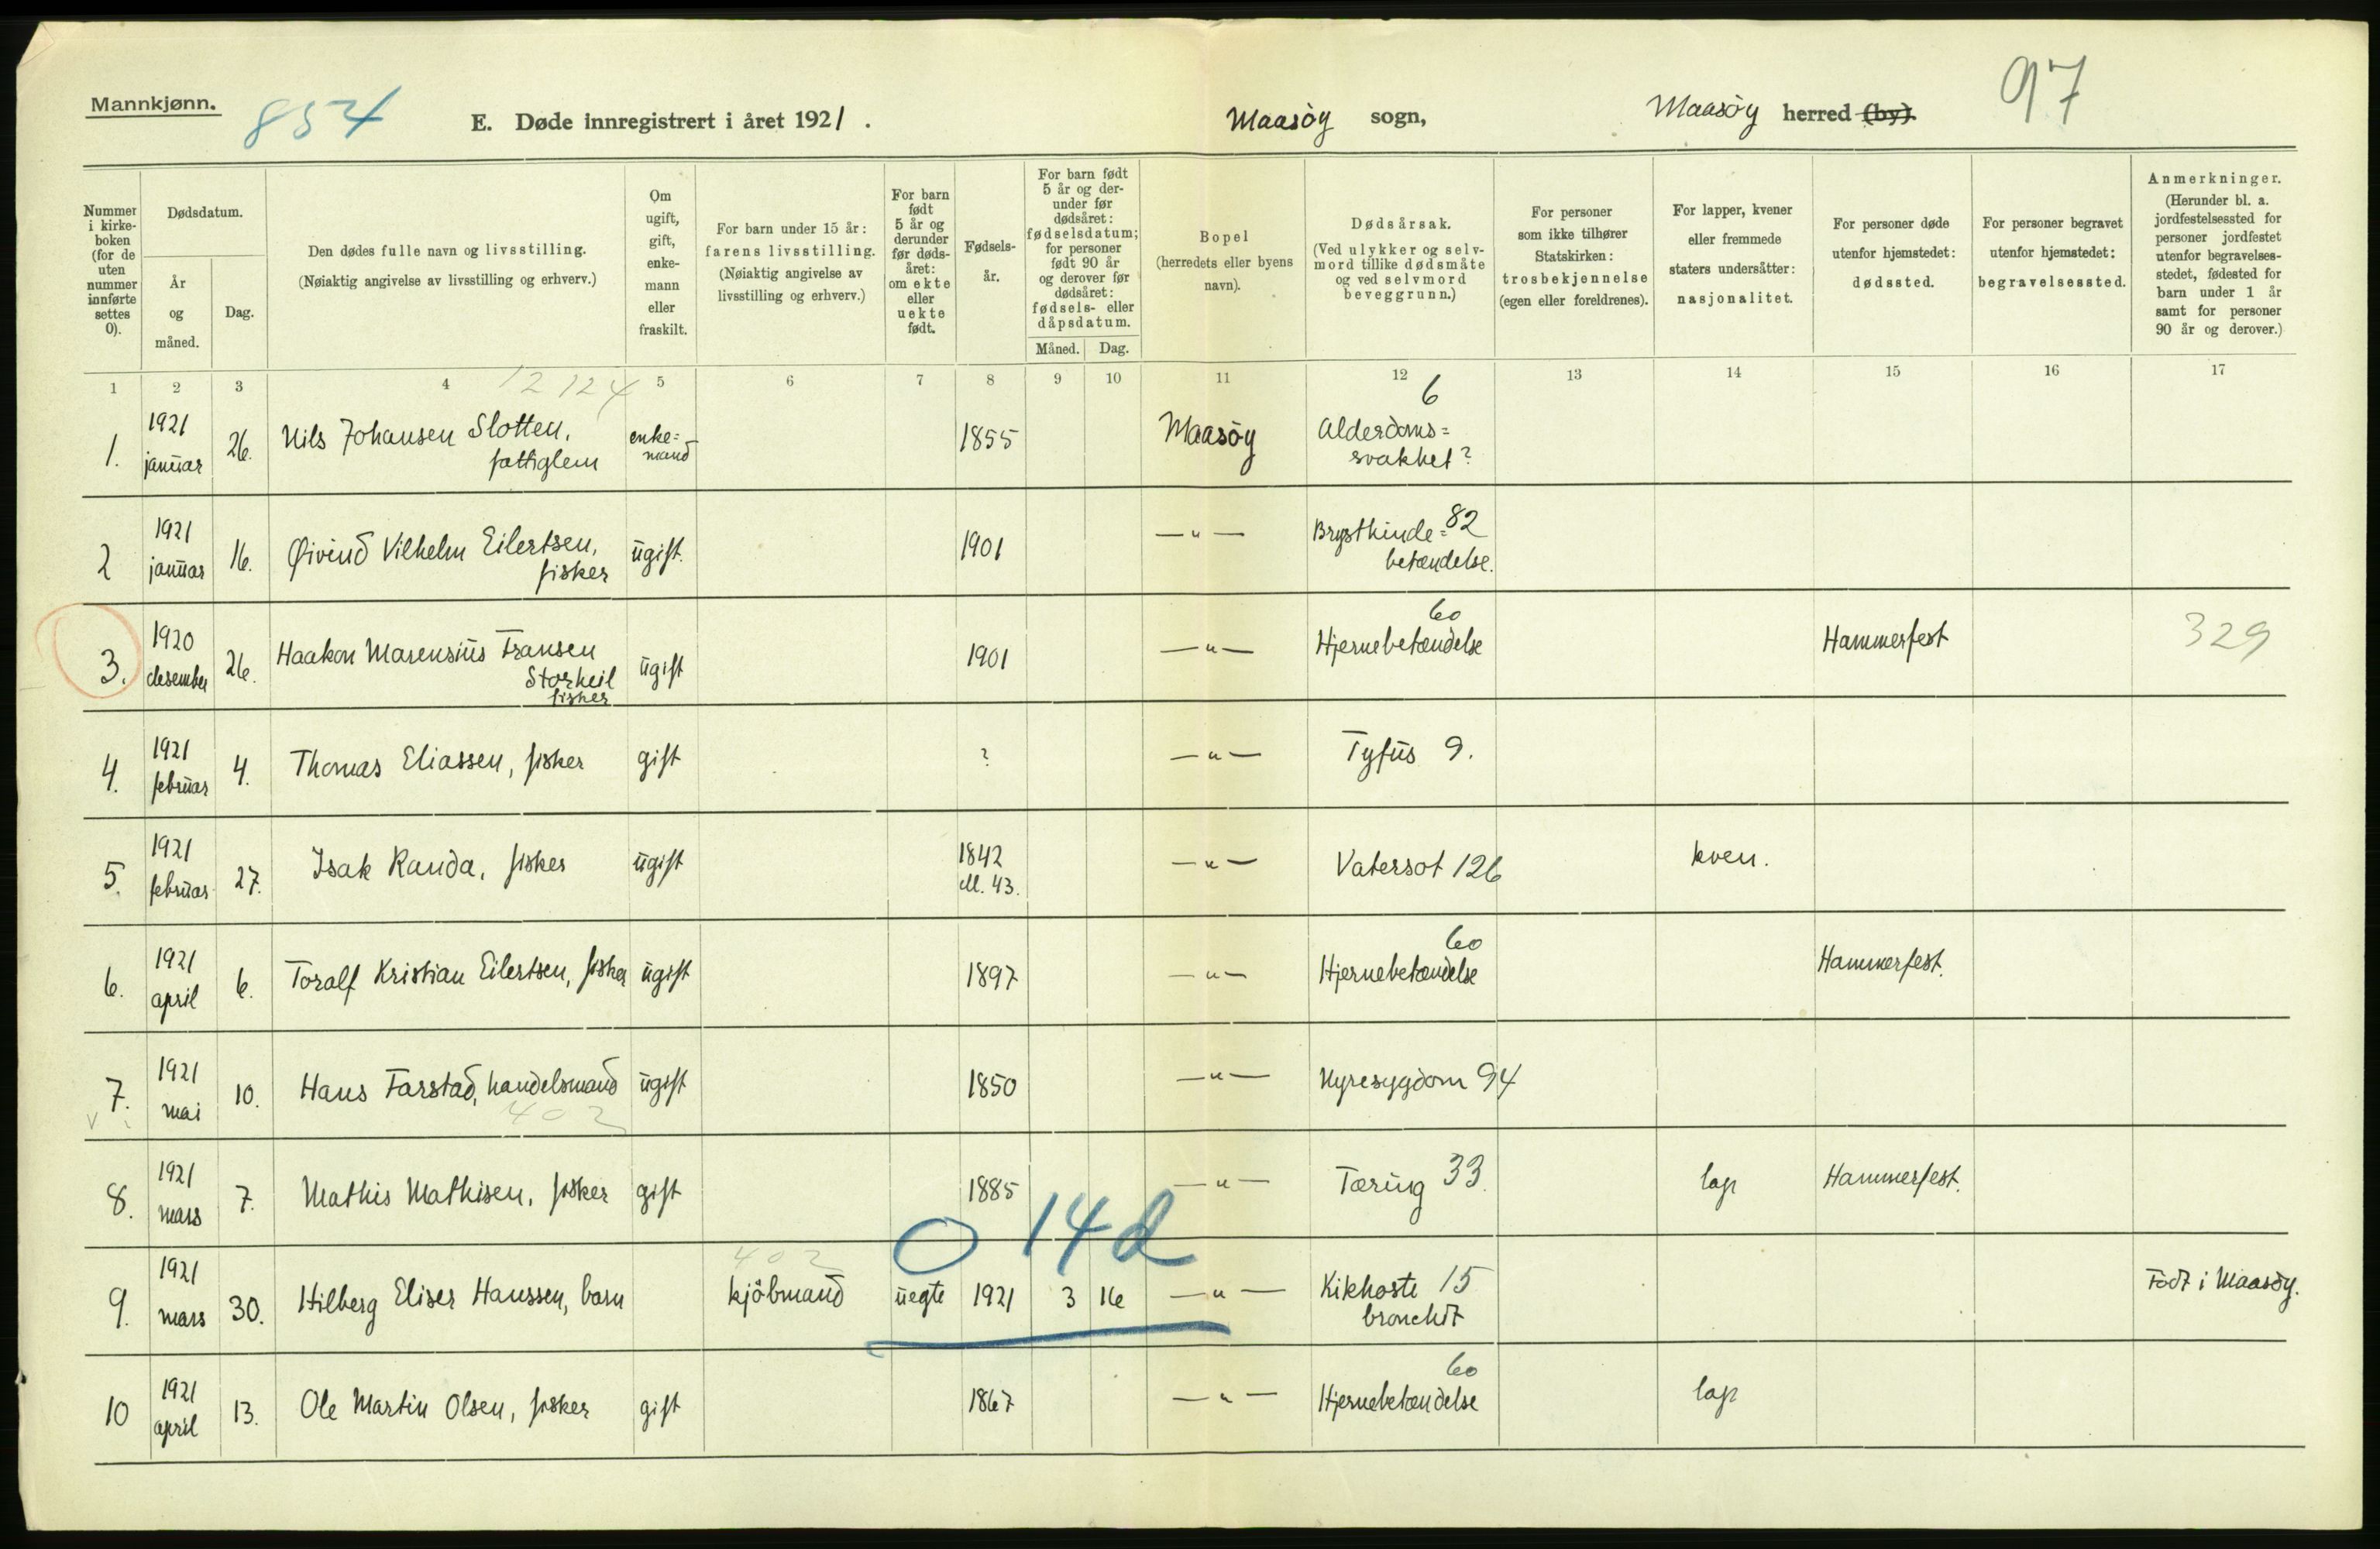 Mannkjønn.
854
E. Døde innregistrert i året 1921.
Maasöy sogn,
Maasöy herred (by).
97
Nummer i kirke-boken (for de uten nummer innførte settes 0).
Dødsdatum.
År og måned.
Dag.
Den dødes fulle navn og livsstilling.
(Nøiaktig angivelse av livsstilling og erhverv.)
Om ugift, gift, enke-mann eller fraskilt.
For barn under 15 år: farens livsstilling.
(Nøiaktig angivelse av livsstilling og erhverv.)
For barn født 5 år og derunder før døds-året: om ekte eller uekte født.
Fødsels-år.
For barn født 5 år og der-under før dødsåret: fødselsdatum; for personer født 90 år og derover før dødsåret: fødsels- eller dåpsdatum.
Måned. Dag.
Bopel
(herredets eller byens navn).
Dødsårsak.
(Ved ulykker og selv-mord tillike dødsmåte og ved selvmord beveggrunn.)
For personer som ikke tilhører Statskirken: trosbekjennelse (egen eller foreldrenes).
For lapper, kvener eller fremmede staters undersåtter: nasjonalitet.
For personer døde utenfor hjemstedet: dødssted.
For personer begravet utenfor hjemstedet: begravelsessted.
Anmerkninger.
(Herunder bl. a. jordfestelsessted for personer jordfestet utenfor begravelses-stedet, fødested for barn under 1 år samt for personer 90 år og derover.)
1 2 3 4 5 6 7 8 9 10 11 12 13 14 15 16 17
12124
1. 1921 januar 26. Nils Johansen Slotten, fattiglem enke=mand 1855 Maasöy Alderdoms=svakhet? 6
2 1921 januar 16. Øivind Vilhelm Eilertsen, fisker ugift. 1901 —"— Brysthinde=betændelse. 82
3. 1920 desember 26. Haakon Marensius Fransen Storkeil fisker ugift 1901 —"— Hjernebetændelse 60 Hammerfest 329
4. 1921 februar 4. Thomas Eliassen, fisker gift ? —"— Tyfus 9.
5. 1921 februar 27. Isak Randa, fisker ugift 1842 ell. 43. —"— Vatersot 126 kven.
6. 1921 april 6. Toralf Kristian Eilertsen, fisker ugift 1897 —"— Hjernebetændelse 60 Hammerfest.
7. 1921 mai 10. Hans Farstad, handelsmand ugift 1850 —"— Nyresygdom 94
402
8. 1921 mars 7. Mathis Mathisen, fisker gift 1885 —"— Tæring 33. lap Hammerfest.
0 14 d
402
9. 1921 mars 30. Hilberg Eliser Hanssen, barn kjöbmand uegte 1921 3 16 —"— Kikhoste 15 bronchit Födt i Maasöy.
10 1921 april 13. Ole Martin Olsen, fisker gift 1867 —"— Hjernebetændelse 60 lap